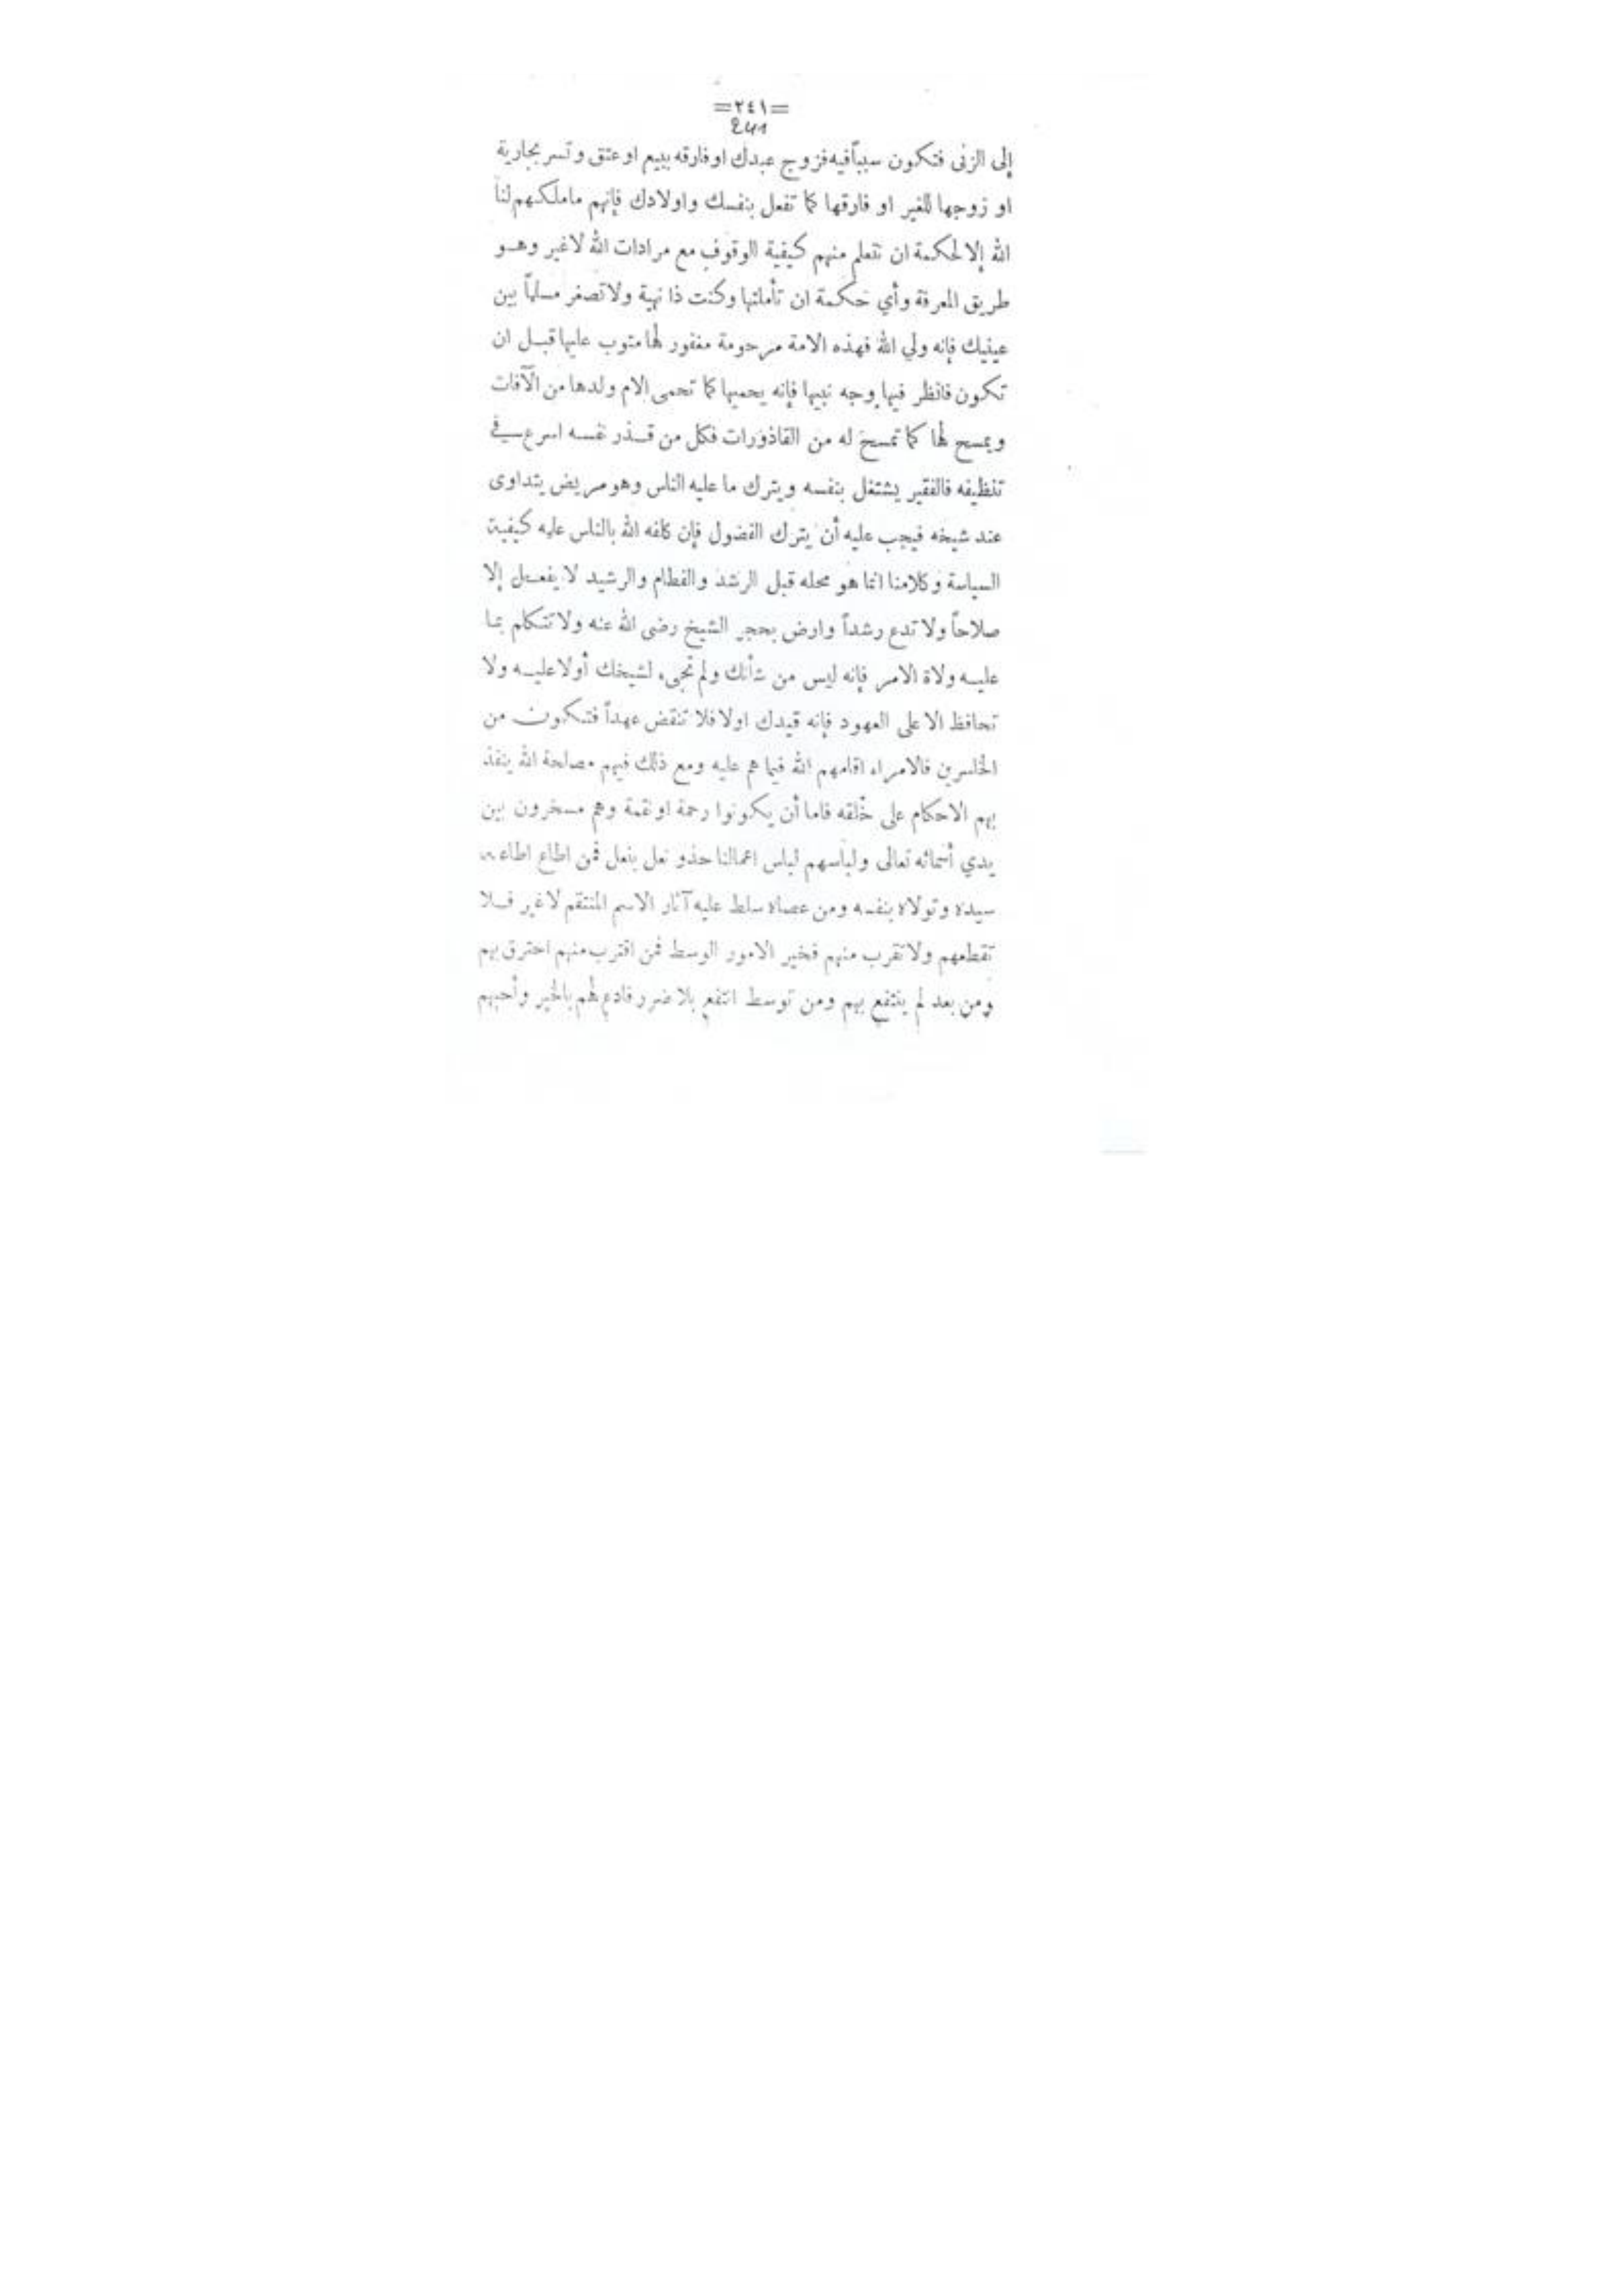 =٢٤١=
241
إلى الزنى فتكون سبباً فيه فزوج عبدك او فارقه ببيع او عتق و تسر بجارية
او زوجها للغير او فارقها كما تفعل بنفسك واولادك فإنهم ماملكهم لنا
الله إلا لحكمة ان نتعلم منهم كيفية الوقوف مع مرادات الله لاغير وهو
طريق المعرفة وأي حكمة ان تأملتها وكنت ذا نهية ولا تصغر مسلماً بين
عينيك فإنه ولي الله فهذه الامة مرحومة مغفور لها متوب عليها قبل ان
تكون فانظر فيها بوجه نبيها فإنه يحميها كما تحمى الام ولدها من الآفات
ويمسح لها كما تمسح له من القاذورات فكل من قذر نفسه اسرع في
تنظيفه فالفقير يشتغل بنفسه ويترك ما عليه الناس وهو مريض يتداوى
عند شيخه فيجب عليه أن يترك الفضول فإن كلفه الله بالناس عليه كيفية
السياسة وكلامنا انما هو محله قبل الرشد والفطام والرشيد لا يفعل إلا
صلاحاً ولا تدع رشداً وارض بحجر الشيخ رضى الله عنه ولا تتكلم بما
عليه ولاة الامر فإنه ليس من شأنك ولم تجىء لشيخك أولا عليه ولا
تحافظ الا على العهود فإنه قيدك اولا فلا تنقض عهداً فتكون من
الخاسرين فالامراء اقامهم الله فيما هم عليه ومع ذلك فيهم مصلحة الله ينفذ
بهم الاحكام على خلقه فاما أن يكونوا رحمة او نقمة وهم مسخرون بين
يدي أسمائه تعالى ولباسهم لباس اعمالنا حذو نعل بنعل فمن اطاع اطاعه
سيده وتولاه بنفسه ومن عصاه سلط عليه آثار الاسم المنتقم لاغير فلا
تقطعهم ولا تقرب منهم فخير الامور الوسط فمن اقترب منهم احترق بهم
ومن بعد لم ينتفع بهم ومن توسط انتفع بلا ضرر فادع لهم بالخير وأحبهم